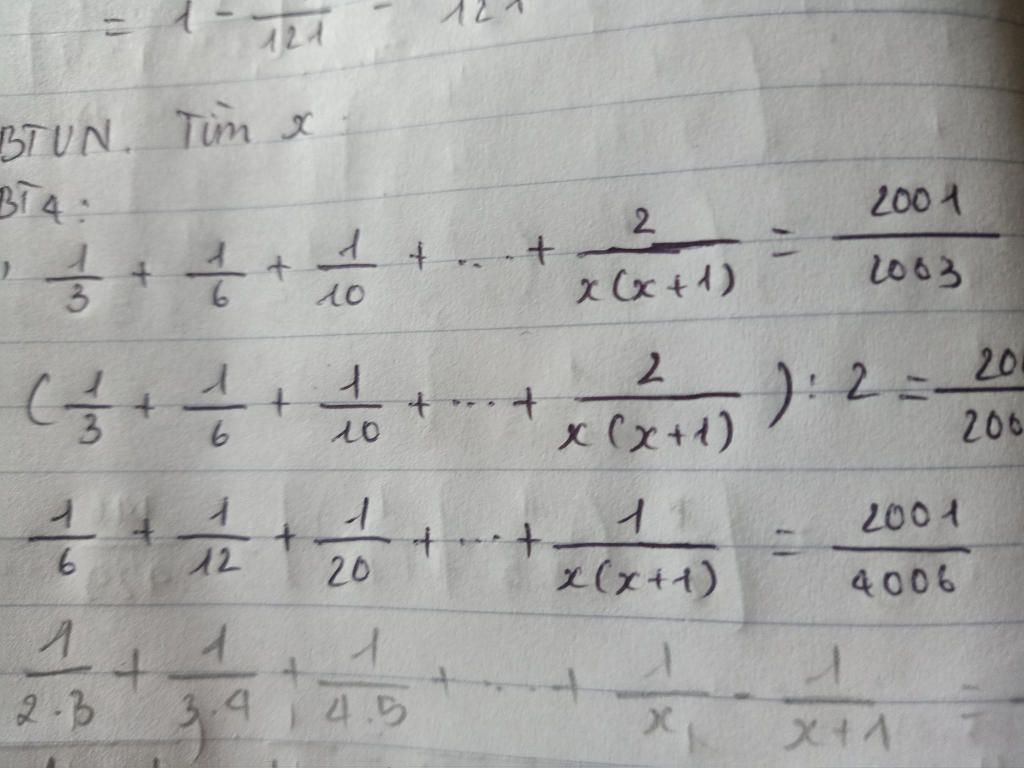 = 1 - 1/121 - 121
BTVN. Tìm x
BT4:
1/3 + 1/6 + 1/10 + ... + 2/x(x+1) = 2001/2003
(1/3 + 1/6 + 1/10 + ... + 2/x(x+1)) : 2 =
1/6 + 1/12 + 1/20 + ... + 1/x(x+1) = 2001/4006
1/2.3 + 1/3.4 + 1/4.5 + ... + 1/x - 1/x+1 =